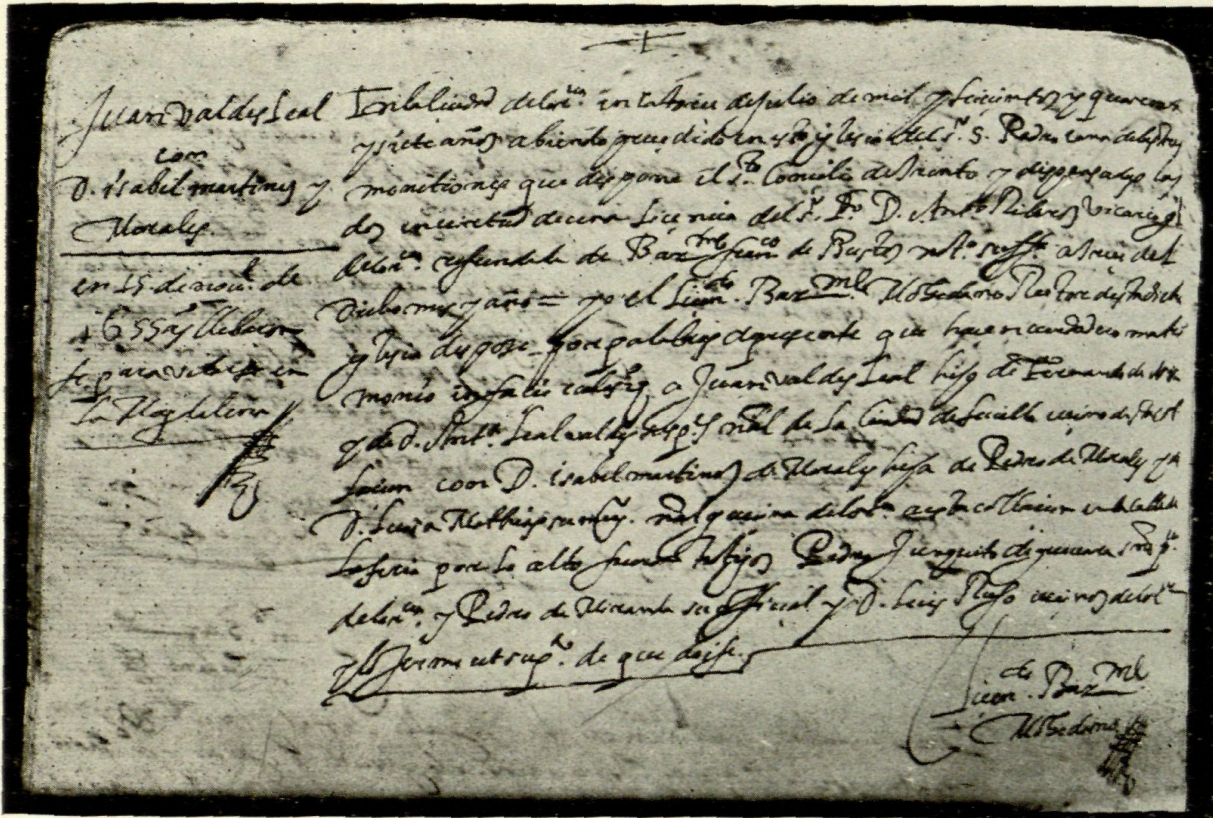 Juan Valdes Leal
con
D. isabel martinez y
Morales.
en 15 de nou.e de
1655 as llebaron
fe para velarse en
la Magdalena
En la ciudad de Cor.ua en catorce de julio de mil y seicientos y quarenta
y siete años abiendo precedido en esta yglesia del s.r S. Pedro una de las tres
monitiones que dispone el s.to Concilio de Trento y dispensadas las
dos en uertud de una licencia del s.r D. Ant.o Ribero Vicario g.l
de Cor.ua refrendada de Bar.me fran.co de Bustos not.o
dicho mes y año = yo el Licen.do Bar.me Mohedano Retor desta dicha
yglesia despose por palabras de presente que hacen verdadero matri
monio in facie eclesię a Juan valdes Leal hijo de Fernando de
y de D. Ant.a Leal valdes nral de la Ciudad de Seuilla
lacion con D. isabel martines de Morales hija de Pedro de Morales y de
D. Luisa su muger. de Cor.ua a esta collacion en la calle de
la feria por lo alto fueron testigos Pedro Junguito de
de Cor.ua y Pedro de Miranda su official y D. Luis Rufo uecinos de Cor.ua
y lo firme ut sup.a de que doi fe.
Licen.do Bar.me
Mohedano